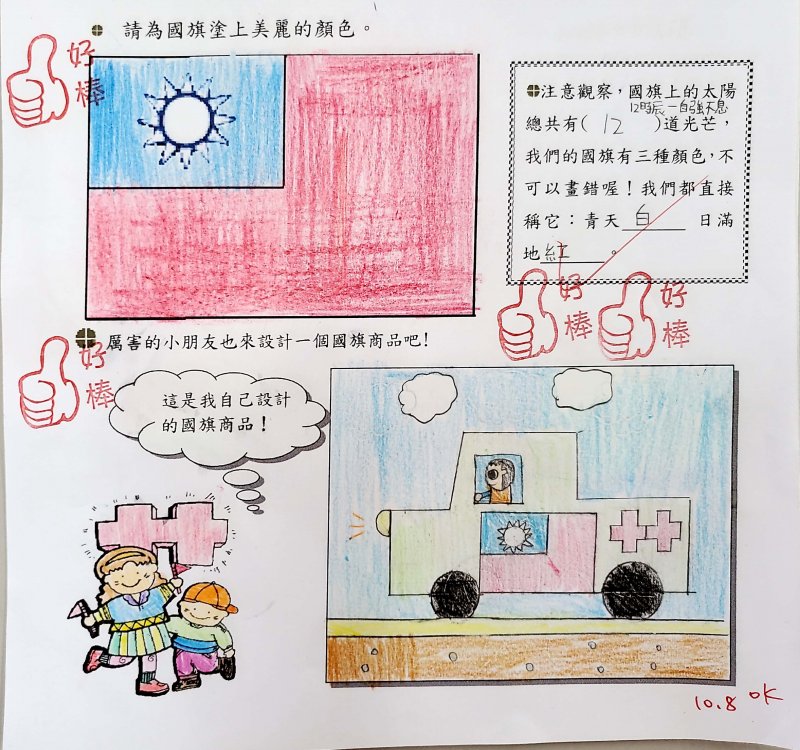 請為國旗塗上美麗的顏色。
好棒
注意觀察，國旗上的太陽
12時辰－自強不息
總共有( 12 )道光芒，
我們的國旗有三種顏色，不
可以畫錯喔！我們都直接
稱它：青天 白 日滿
地紅。
好棒
好棒
厲害的小朋友也來設計一個國旗商品吧！
好棒
這是我自己設計
的國旗商品！
10.8 OK